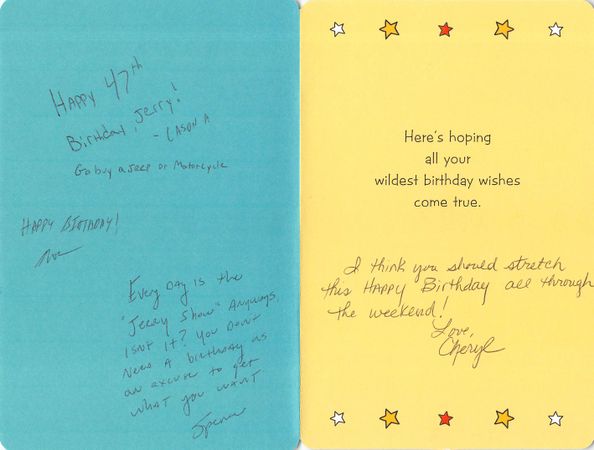 Happy 47th
Birthday, Jerry!
- Cason A
Go buy a Jeep or Motorcycle
Happy Birthday!
Every day is the
"Jerry Show" Anyways,
isn't it? You don't
need a birthday as
an excuse to get
what you want.
Here's hoping
all your
wildest birthday wishes
come true.
I think you should stretch
this HAPPY Birthday all through
the weekend!
Love,
Cheryl